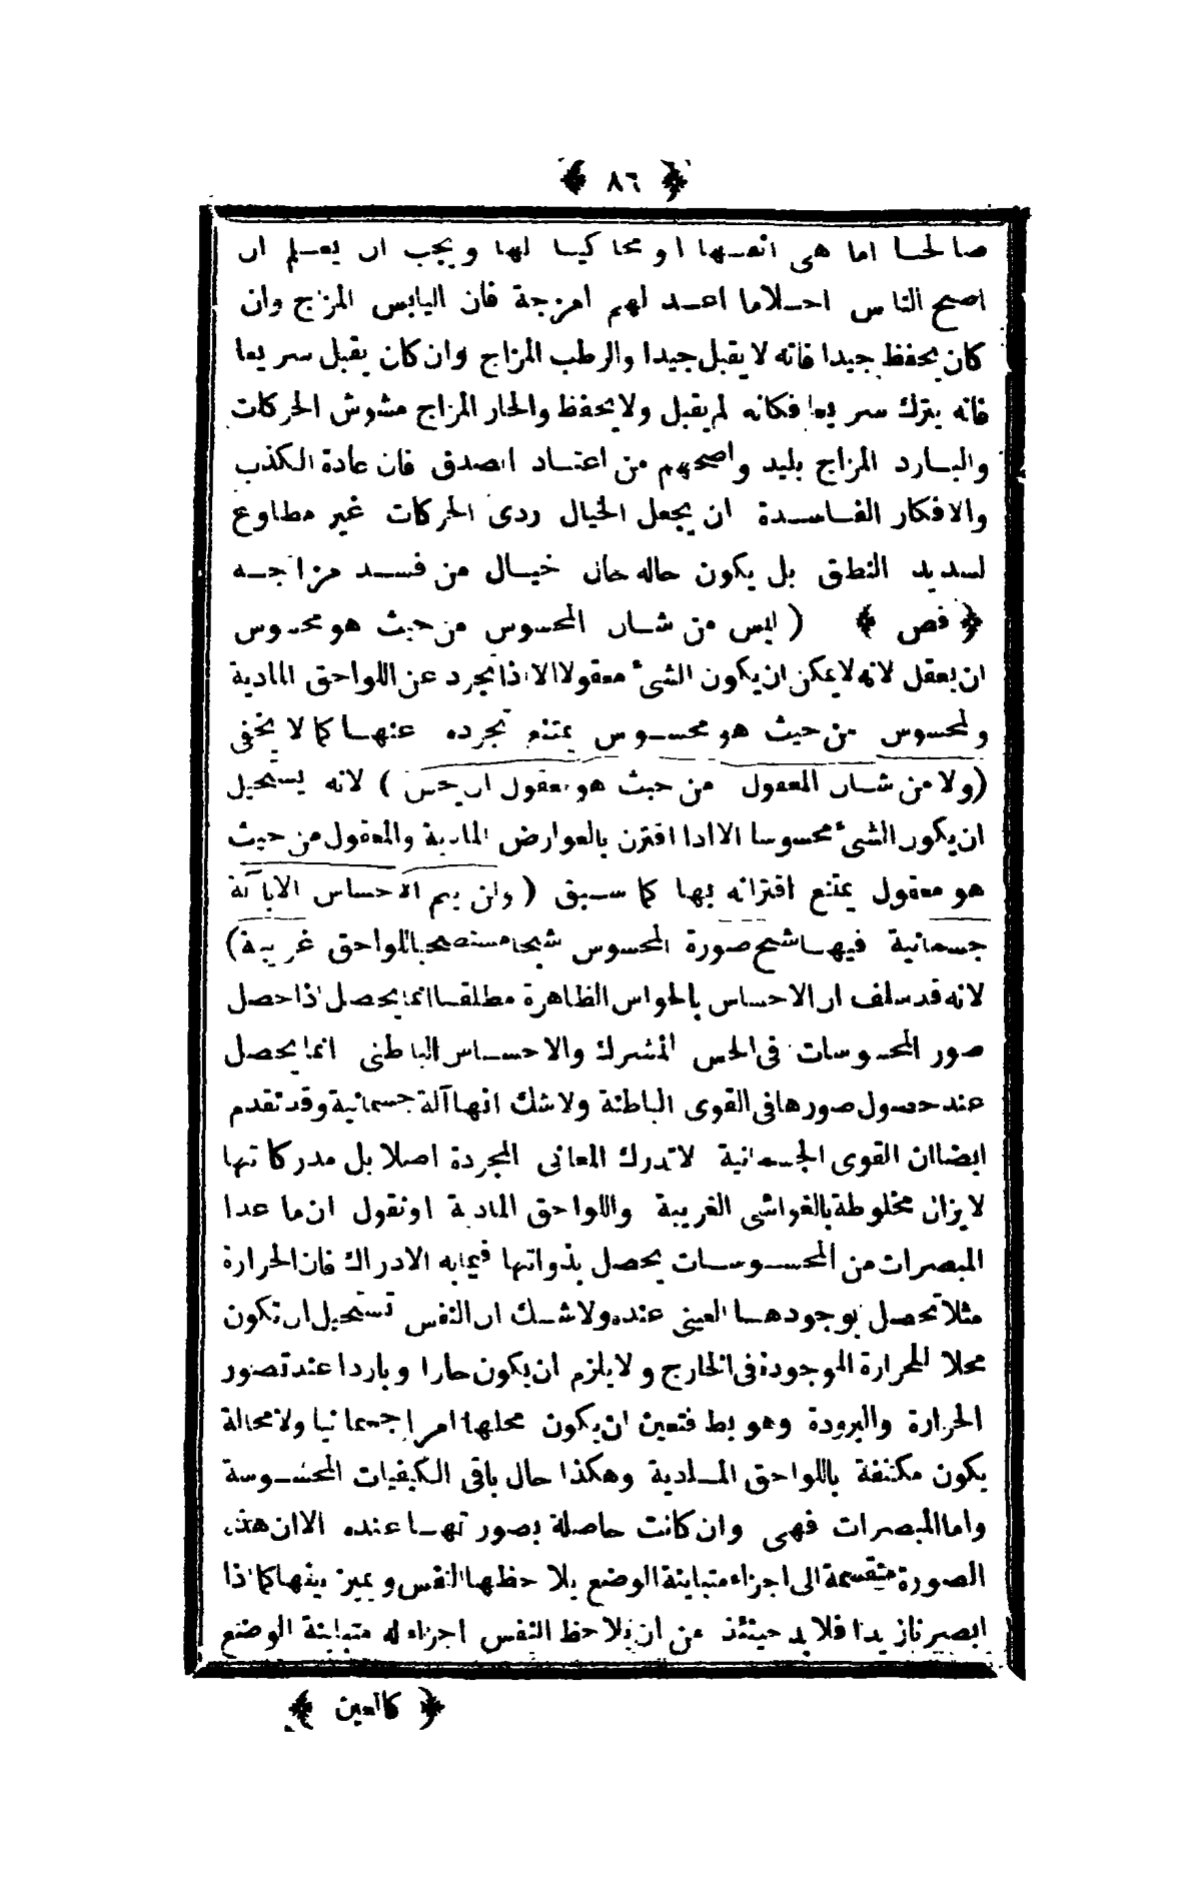 ﴿ ٨٦ ﴾
صالحا اما هى انفسها او محاكيا لها ويجب ان يعلم ان
اصح الناس احلاما اعد لهم امزجة فان اليابس المزاج وان
كان يحفظ جيدا فانه لا يقبل جيدا والرطب المزاج وان كان يقبل سريعا
فانه يترك سريعا فكانه لم يقبل ولا يحفظ والحار المزاج مشوش الحركات
والبارد المزاج بليد واصحهم من اعتاد الصدق فان عادة الكذب
والافكار الفاسدة ان يجعل الخيال ردى الحركات غير مطاوع
لسديد النطق بل يكون حاله حال خيال من فسد مزاجه
﴿ فص ﴾ ( ليس من شان المحسوس من حيث هو محسوس
ان يعقل لانه لا يمكن ان يكون الشئ معقولا الا اذا تجرد عن اللواحق المادية
والمحسوس من حيث هو محسوس يمتنع تجرده عنها كما لا يخفى
(ولا من شان المعقول من حيث هو معقول ان يحس ) لانه يستحيل
ان يكون الشئ محسوسا الا اذا اقترن بالعوارض المادية والمعقول من حيث
هو معقول يمتنع اقترانه بها كما سبق ( ولن يتم الاحساس الا بآلة
جسمانية فيها شبح صورة المحسوس شبحا مستصحبا للواحق غريبة)
لانه قد سلف ان الاحساس بالحواس الظاهرة مطلقا انما يحصل اذا حصل
صور المحسوسات فى الحس المشترك والاحساس الباطنى انما يحصل
عند حصول صورها فى القوى الباطنة ولا شك انها آلة جسمانية وقد تقدم
ايضا ان القوى الجسمانية لا تدرك المعانى المجردة اصلا بل مدركاتها
لا يزال مخلوطة بالغواشى الغريبة واللواحق المادية او نقول ان ما عدا
المبصرات من المحسوسات يحصل بذواتها فيما به الادراك فان الحرارة
مثلا تحصل بوجودها العينى عنده ولا شك ان النفس تستحيل ان تكون
محلا للحرارة الموجودة فى الخارج ولا يلزم ان يكون حارا وباردا عند تصور
الحرارة والبرودة وهو بط فتعين ان يكون محلها امرا جسمانيا ولا محالة
يكون مكتنفة باللواحق المادية وهكذا حال باقى الكيفيات المحسوسة
واما المبصرات فهى وان كانت حاصلة بصورتها عنده الا ان هذه
الصورة منقسمة الى اجزاء متباينة الوضع يلاحظها النفس ويميز بينها كما اذا
ابصرنا زيدا فلا بد حينئذ من ان يلاحظ النفس اجزاء له متباينة الوضع
﴿ كالعين ﴾